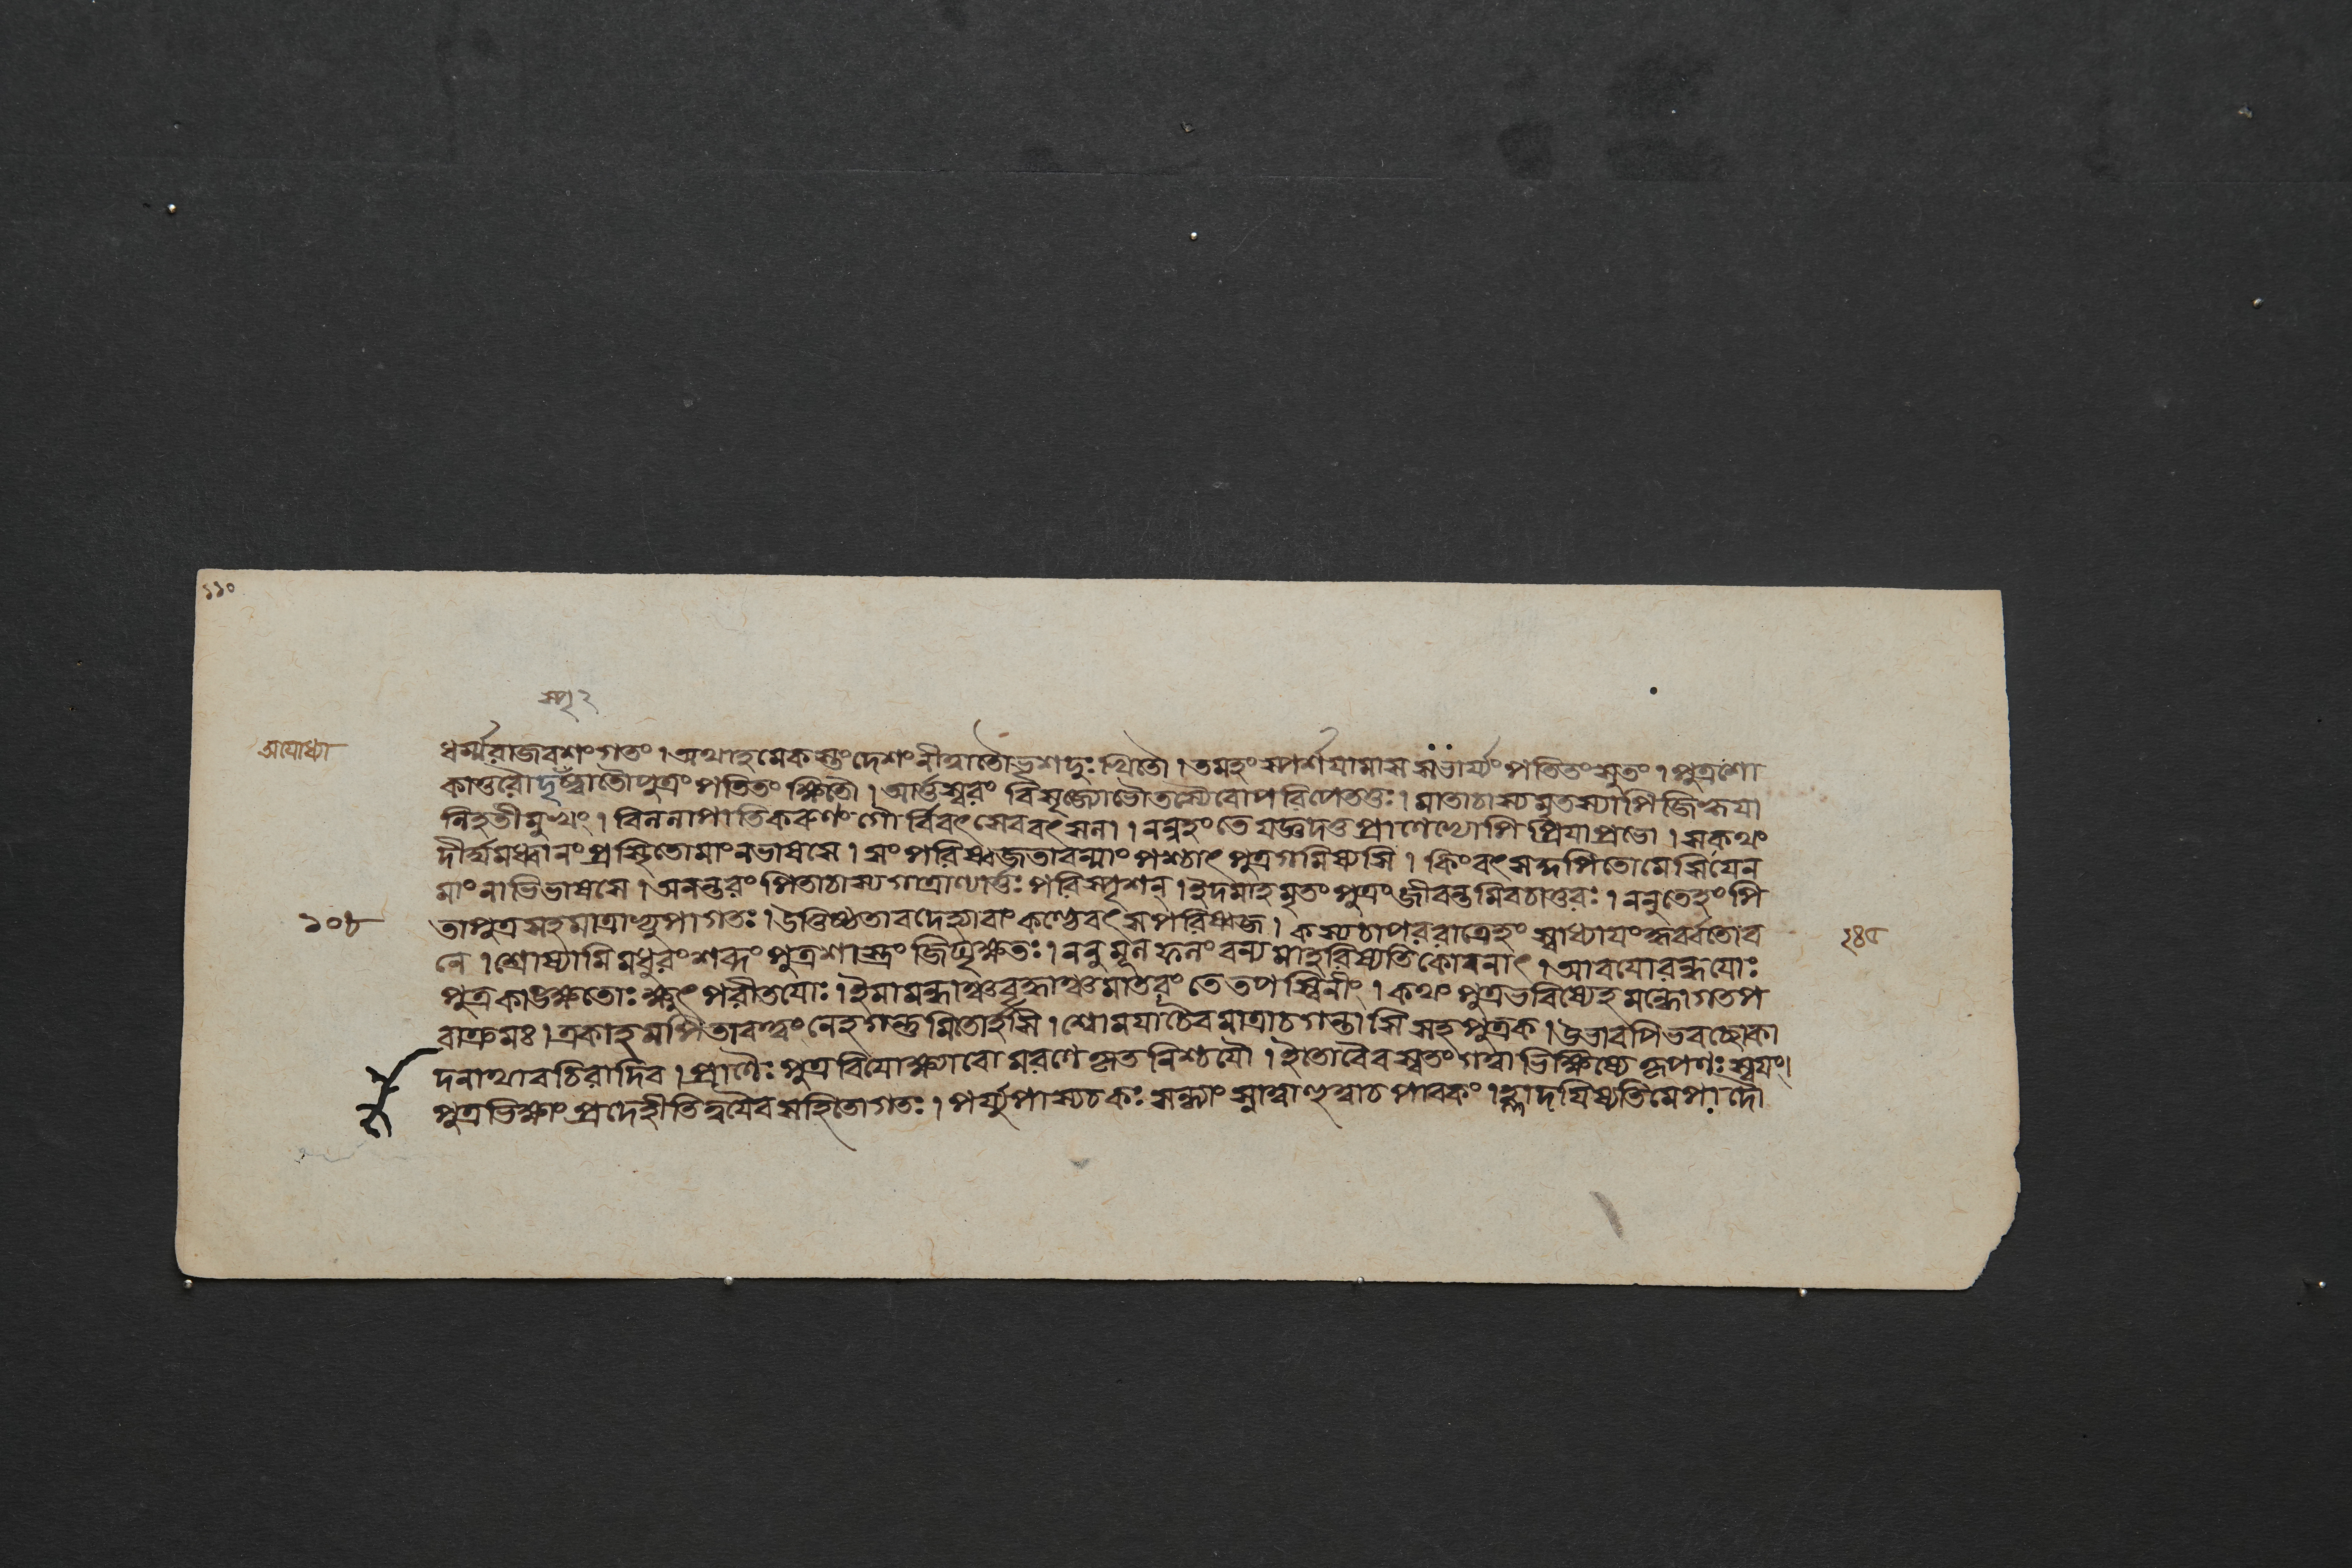 ১১০
স্পৃ ২
অযোধ্যা
ধর্ম্মরাজবশংগতং । অথাহমেকস্তুংদেশংনীত্বাতৌভৃশদুঃখিতৌ । তমহংস্পর্শযামাস সভার্য্যংপতিতংসুতং । পুত্রশো
কাতুরৌদৃষ্ট্বাতৌপুত্রংপতিতংক্ষিতৌ । আর্ত্তস্বরং বিসৃজ্যোভৌতস্যৈবোপরিপেততুঃ । মাতাচাস্যমৃতস্যাপিজিহ্বযা
নিহতীমুখং । বিললাপাতিকরুণং গৌর্বিবৎসেববৎসলা । ননুহংতে যজ্ঞদত্তপ্রাণেভ্যোপি প্রিযাপ্রভো । সকথং
দীর্ঘমধ্বানংপ্রস্থিতোমাংনভাষসে । সংপরিষ্বজ্যতাবন্মাং পশ্চাৎপুত্রগমিষ্যসি । কিংবৎসকুপিতোমেসিযেন
মাংনাভিভাষসে । অনন্তরংপিতাচাস্যগাত্রাণ্যার্ত্তঃপরিস্পৃশন্ । ইদমাহমৃতংপুত্রংজীবন্তমিবচাতুরঃ । ননুতেহংপি
১০৮
তাপুত্রসহমাত্রাভ্যুপাগতঃ । উত্তিষ্ঠতাবদেহ্যাবাংকণ্ঠেবৎসপরিষ্বজ । কস্যচাপররাত্রেহং স্বাধ্যাযংকুর্ব্বতোব
২৪৫
নে । শ্রোষ্যামিমধুরংশব্দংপুত্রশাস্ত্রংজিঘৃক্ষতঃ । ননুমূলফলংবন্যমাহরিষ্যতিকোবনাৎ । আবযোরন্ধযোঃ
পুত্রকাঙ্ক্ষতোঃক্ষুৎপরীতযোঃ । ইমামন্ধাঞ্চবৃদ্ধাঞ্চমাতরংতেতপস্বিনীং । কথংপুত্রভবিষ্যেহমন্ধোগতপ
রাক্রমঃ । ত্রকাহমপিতাবত্ত্বংনেহগন্তুমিতোর্হসি । শ্বোমযাচৈবমাত্রাচগন্তাসিসহপুত্রক । উভাবপিভবচ্ছোকা
দনাথাবচিরাদিব । প্রাণৈঃপুত্রবিযোক্ষ্যাবোমরণেকৃতনিশ্চযৌ । ইতোবৈবস্বতংগত্বাভিক্ষিষ্যেকৃপণঃস্বযং ।
পুত্রভিক্ষাংপ্রদেহীতিত্বযৈবসহিতোগতঃ । পর্য্যুপাস্যচকঃসন্ধ্যাংস্নাত্বাহুত্বাচপাবকং । হ্লাদযিষ্যতিমেপাদৌ